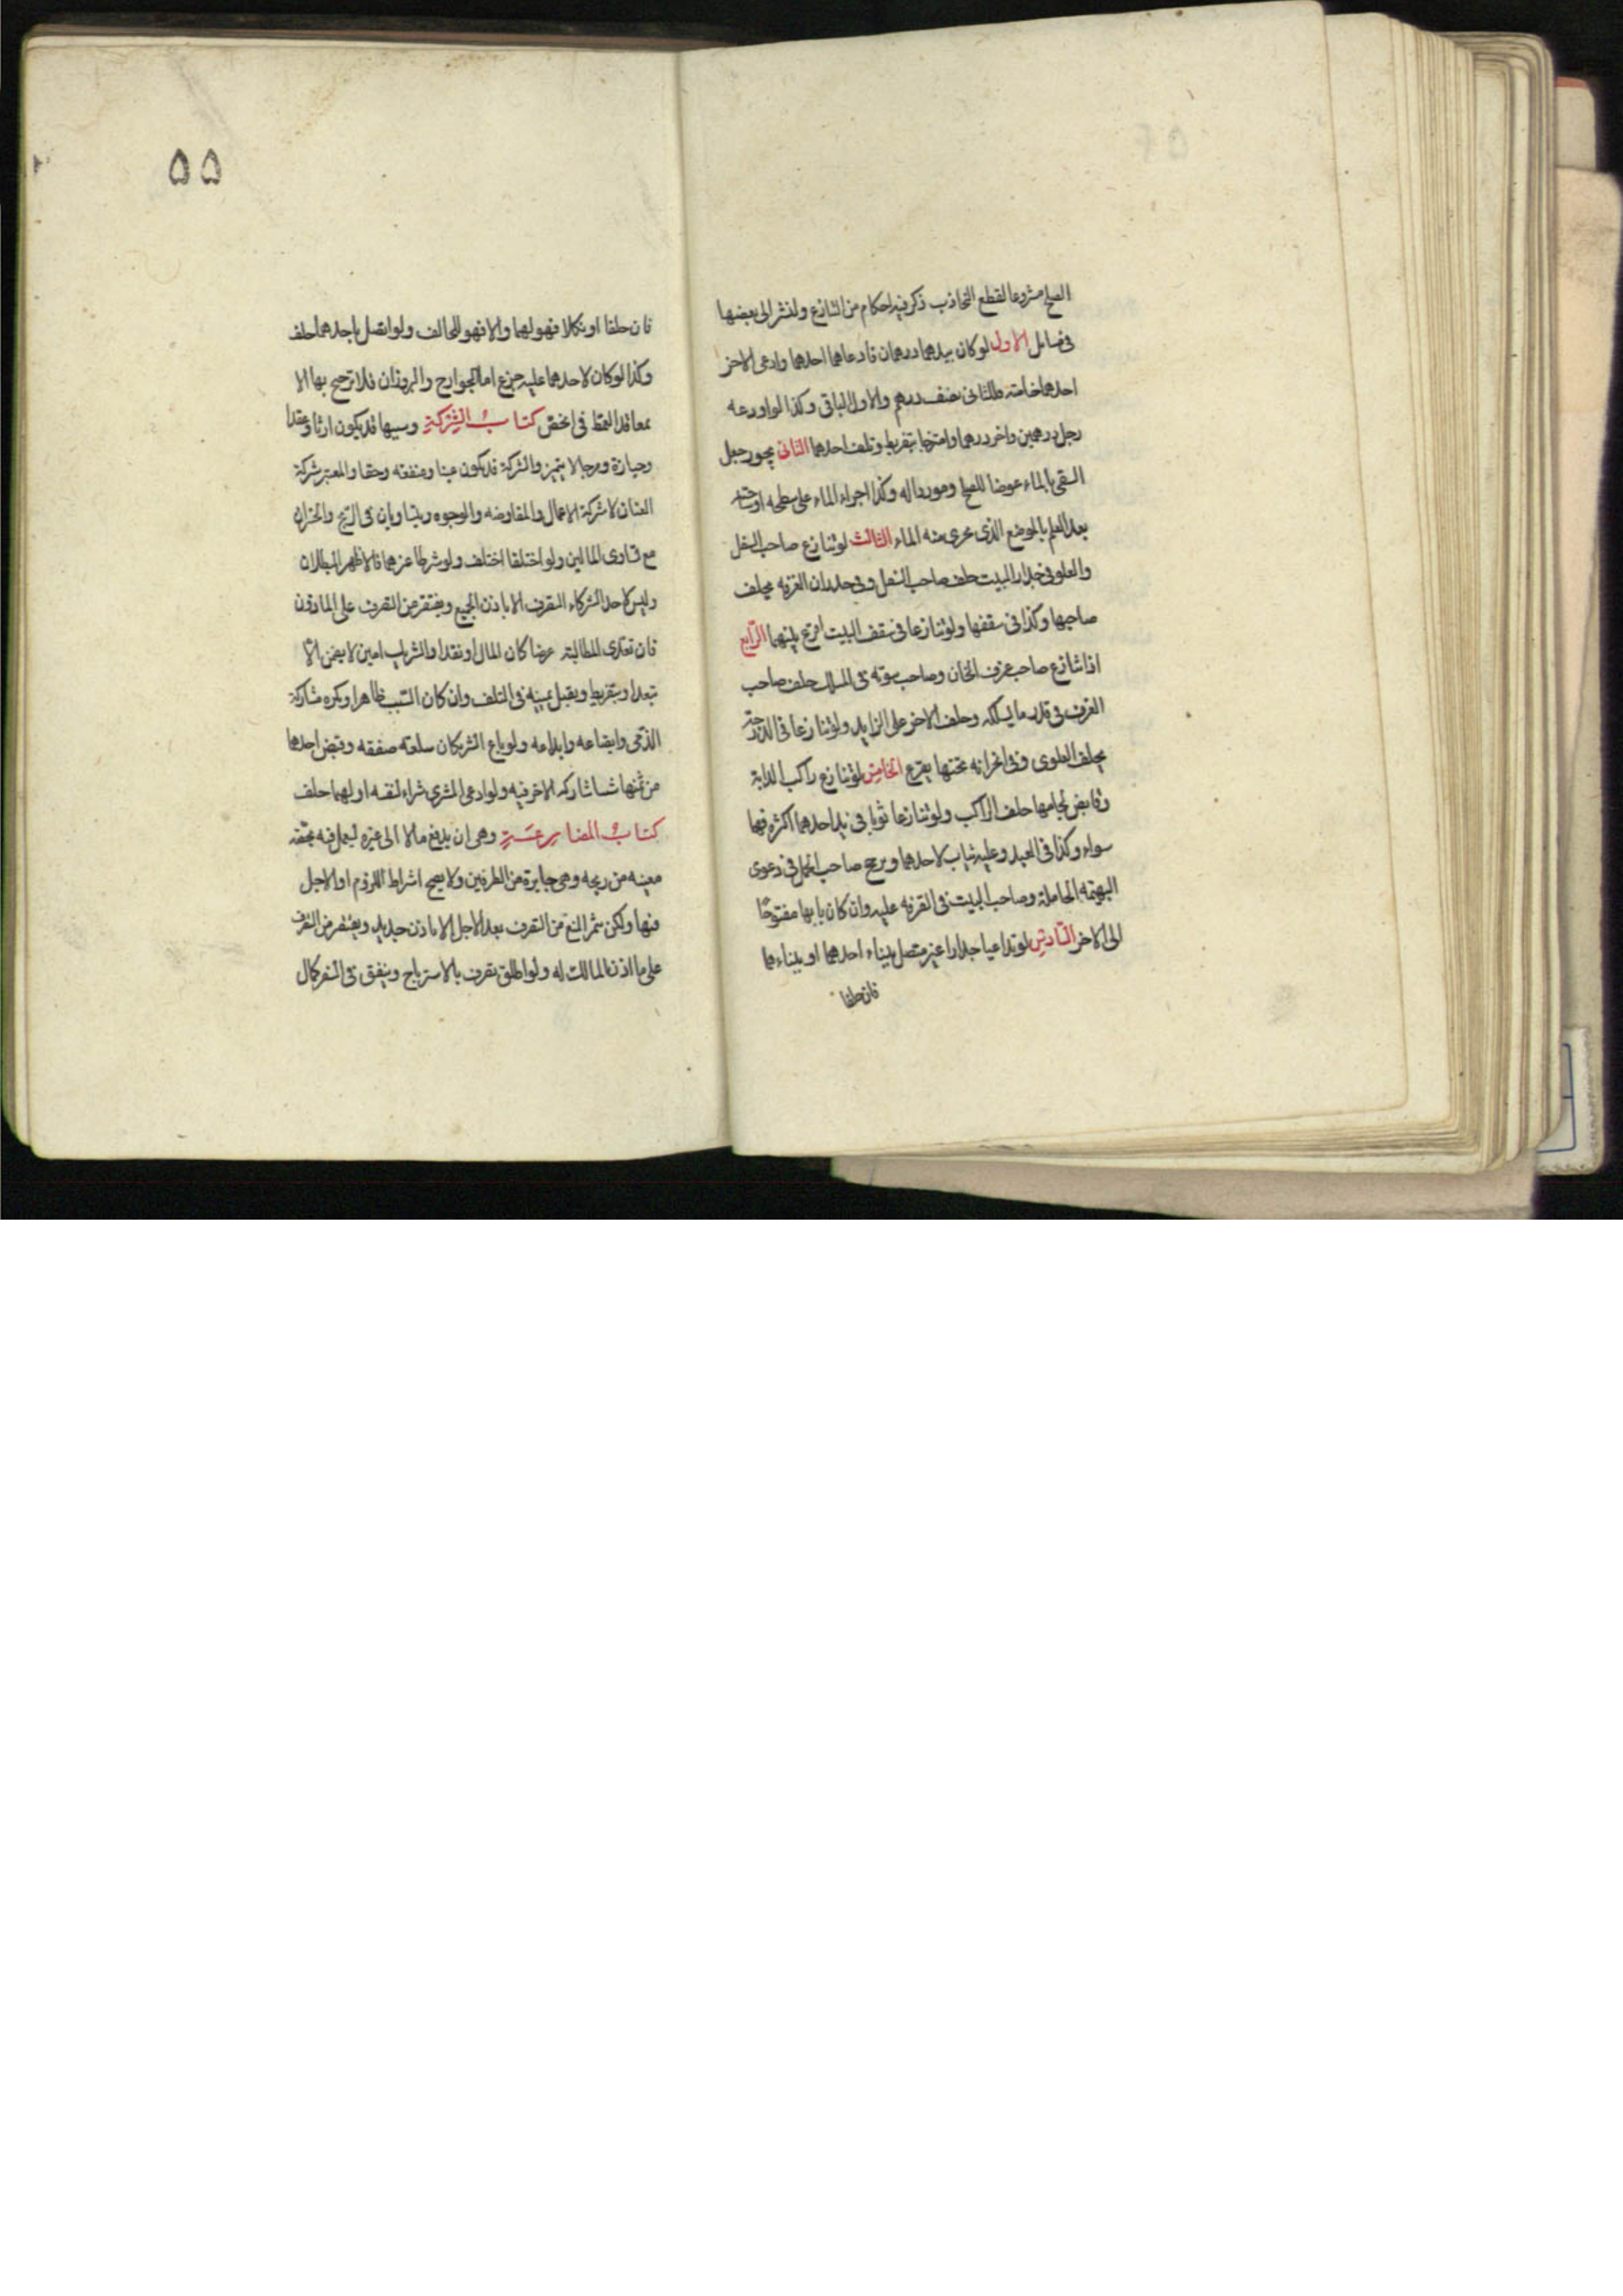 الصلح مشروعا لقطع التجاذب ذكر فيه احكام من التنازع ولنشر الى بعضها
فى مسائل الاول لو كان بيدهما درهمان فادعاهما احدهما وادعى الاخر
احدهما خاصة فللثانى نصف درهم وللاول الباقى وكذا لو اودعه
رجل درهمين واخر درهما وامتزجا بتفريط وتلف احدهما الثانى يجوز جعل
السقى بالماء عوضا للصلح وموردا له وكذا اجراء الماء على سطحه او ساحته
بعد العلم بالموضع الذى يجرى منه الماء الثالث لو تنازع صاحب السفل
والعلو فى جدار البيت حلف صاحب السفل وفى جدران الغرفه يحلف
صاحبها وكذا فى سقفها ولو تنازعا فى سقف البيت اقرع بينهما الرابع
اذا تنازع صاحب غرف الخان وصاحب بيوته فى المسلك حلف صاحب
الغرف فى قدر ما يسلكه وحلف الاخر على الزايد ولو تنازعا فى الدرجة
يحلف العلوى وفى الخزانه تحتها يقرع الخامس لو تنازع راكب الدابة
وقابض لجامها حلف الراكب ولو تنازعا ثوبا فى يد احدهما اكثره فهما
سواء وكذا فى العبد وعليه ثياب لاحدهما ويرجح صاحب الحمل فى دعوى
البهيمه الحاملة وصاحب البيت فى الغرفه عليه وان كان بابها مفتوحًا
الى الاخر السادس لو تداعيا جدارا غير متصل ببناء احدهما او ببناءهما
فان حلفا
۵۵
فان حلفا او نكلا فهو لهما والا فهو للحالف ولو اتصل باحدهما حلف
وكذا لو كان لاحدهما عليه جزع اما الجوارح والروزان فلا ترجيح بها الا
بمعاقد القمط فى الخص كتاب الشركة وسببها قد يكون ارثا وعقدا
وحيازة ومزجا لا يتميز والشركة قد يكون عينا ومنفعه وحقا والمعتبر شركة
العنان لا شركة الاعمال والمفاوضه والوجوه ويتساويان فى الربح والخسران
مع تساوى المالين ولو اختلفا اختلف ولو شرطا غيرهما فالاظهر البطلان
وليس لاحد الشركاء التصرف الا باذن الجميع ويقتصر من التصرف على الماذون
فان تعدى المطالبة عرضا كان المال او نقدا والشريك امين لا يضمن الا
بتعد او بتفريط ويقبل يمينه فى التلف وان كان السبب ظاهرا ويكره مشاركة
الذمى وابضاعه وايداعه ولو باع الشريكان سلعته صفقه وقبض احدهما
من ثمنها شيئا شاركه الاخر فيه ولو ادعى المشترى شراء لنفسه او لهما حلف
كتاب المضاربة وهى ان يدفع مالا الى غيره ليعمل فيه بحصه
معينه من ربحه وهى جايزة من الطرفين ولا يصح اشتراط اللزوم او الاجل
فيها ولكن يثمر المنع من التصرف بعد الاجل الا باذن جديد ويقتصر من التصرف
على ما اذن المالك له ولو اطلق تصرف بالاسترباح وينفق فى السفر كمال